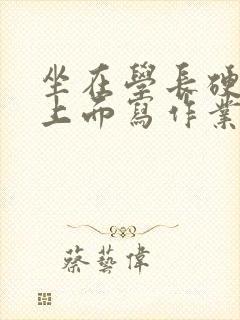 坐在學長硬
上而寫作業
蔡藝偉